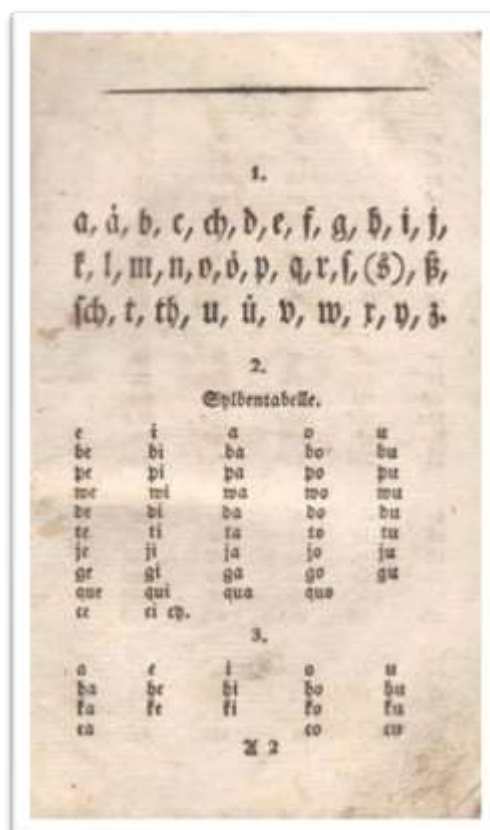 1.
a, ä, b, c, ch, d, e, f, g, h, i, j,
k, l, m, n, o, ö, p, q, r, ſ, (s), ß,
ſch, t, th, u, ü, v, w, x, y, z.
2.
Sylbentabelle.
e i a o u
be bi ba bo bu
pe pi pa po pu
we wi wa wo wu
de di da do du
te ti ta to tu
je ji ja jo ju
ge gi ga go gu
que qui qua quo
ce ci cy.
3.
a e i o u
ha he hi ho hu
ka ke ki ko ku
ca co cu
A 2